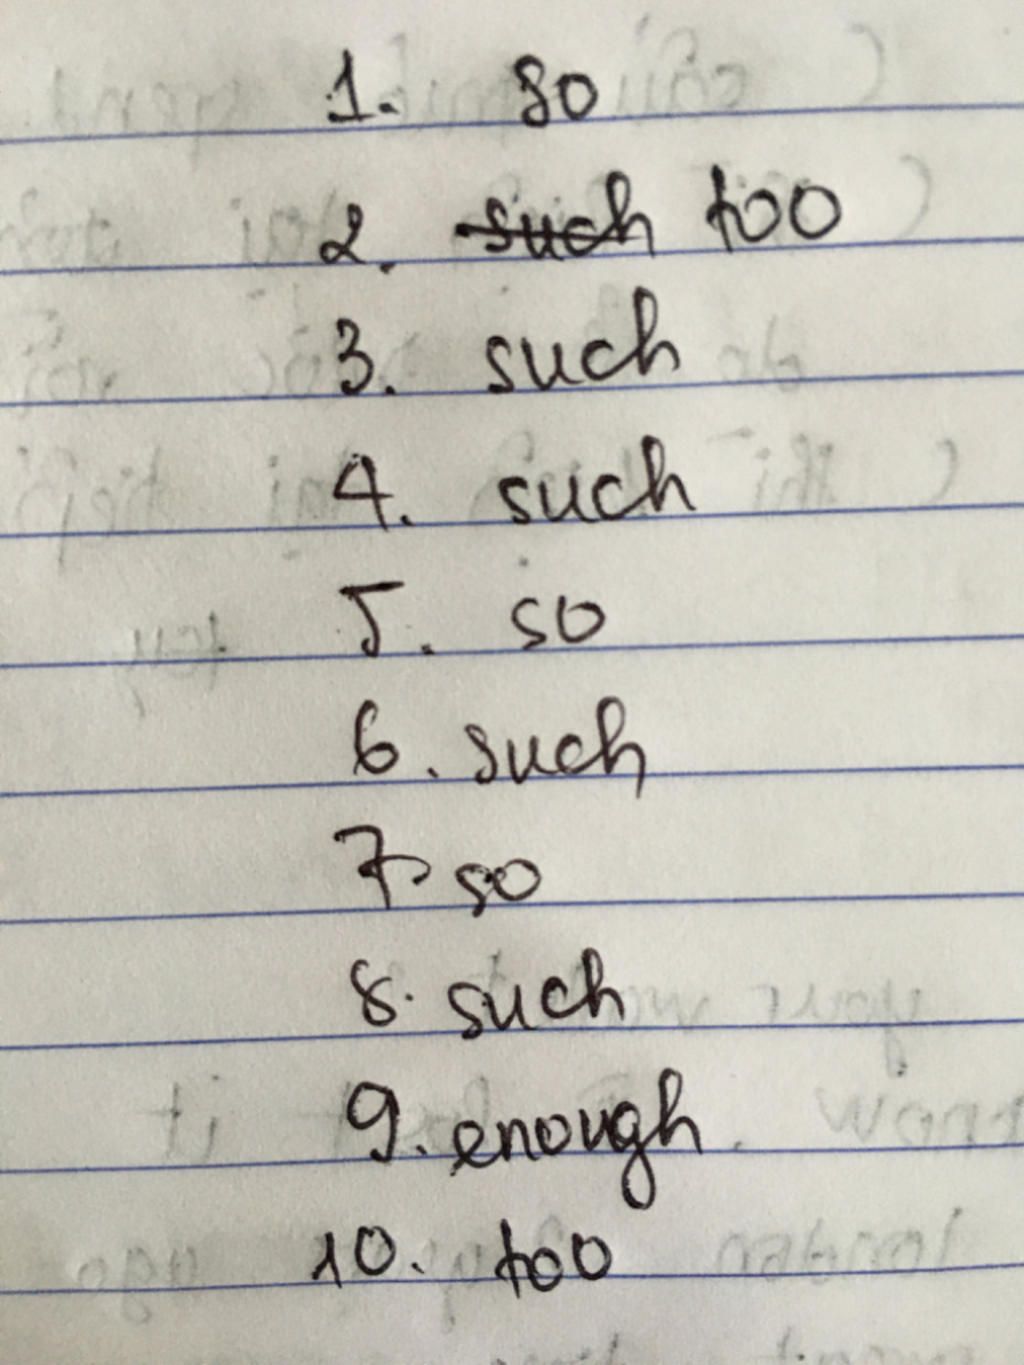 1. so
2. such too
3. such
4. such
5. so
6. such
7. so
8. such
9. enough
10. too